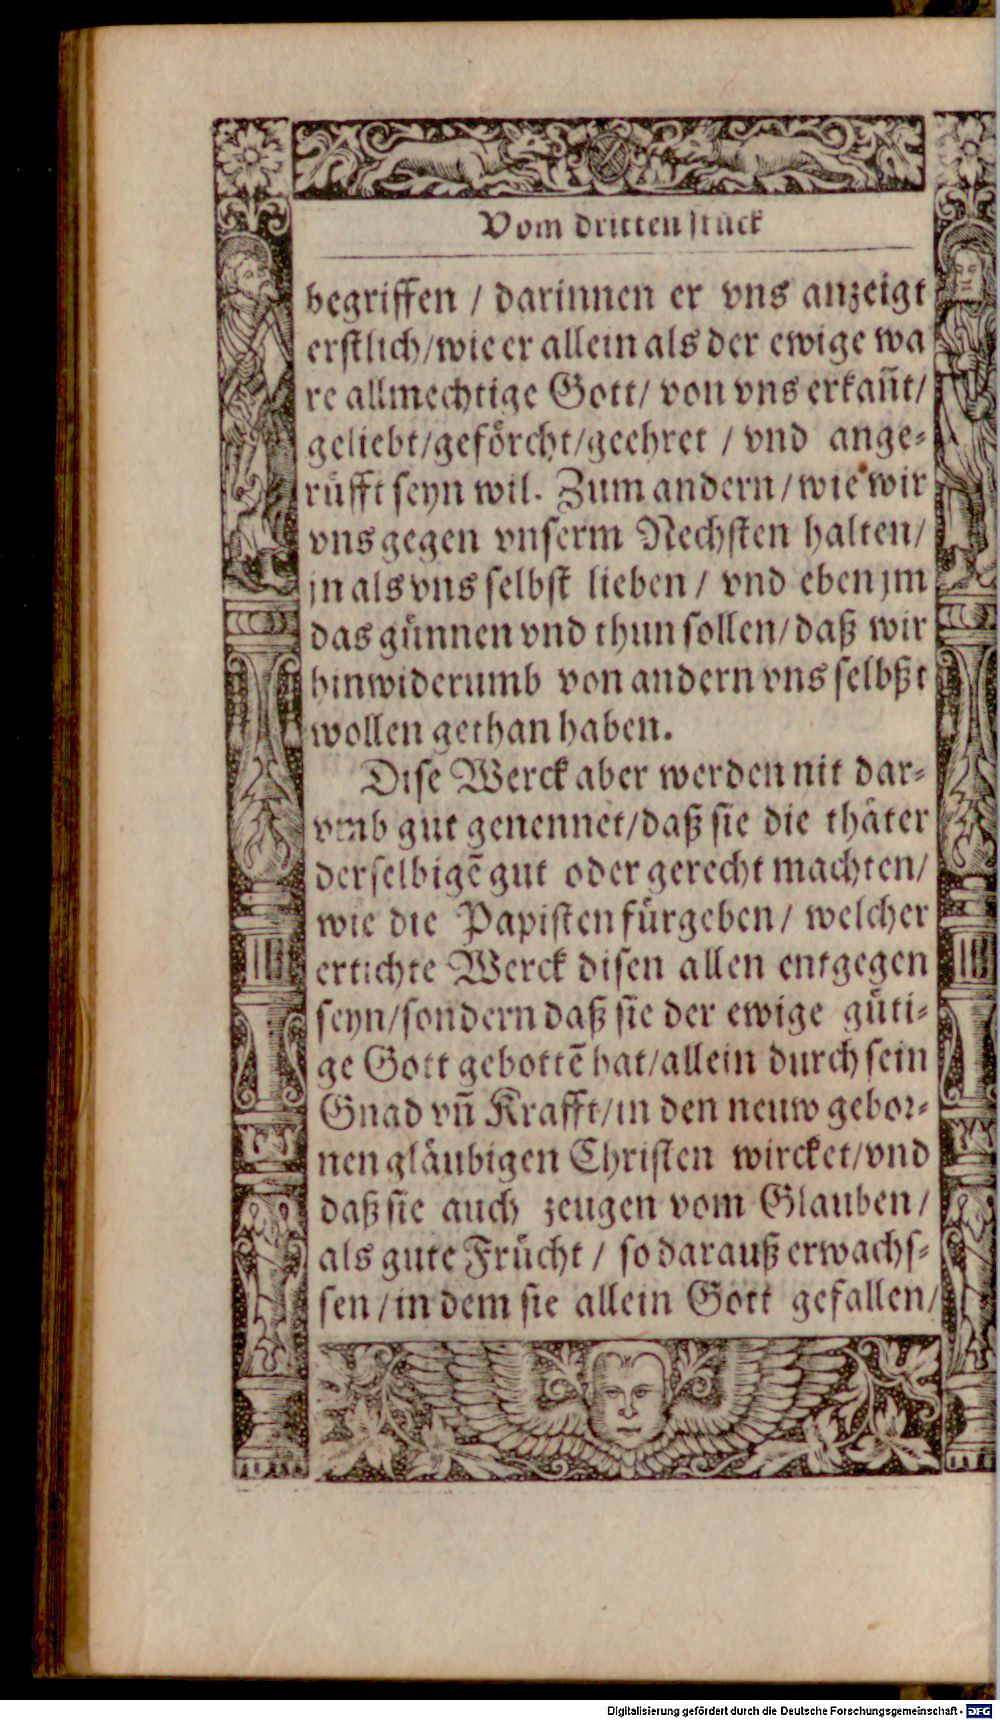 Vom dritten stuck
begriffen / darinnen er vns anzeigt
erstlich/wie er allein als der ewige wa
re allmechtige Gott/ von vns erkañt/
geliebt/geförcht/geehret / vnd ange⸗
rüfft seyn wil. Zum andern/wie wir
vns gegen vnserm Nechsten halten/
jn als vns selbst lieben / vnd eben jm
das günnen vnd thun sollen/daß wir
hinwiderumb von andern vns selbßt
wollen gethan haben.
Dise Werck aber werden nit dar⸗
vmb gut genennet/daß sie die thäter
derselbigē gut oder gerecht machten/
wie die Papisten fürgeben/ welcher
ertichte Werck disen allen entgegen
seyn/sondern daß sie der ewige güti⸗
ge Gott gebottē hat/allein durch sein
Gnad vñ Krafft/in den neuw gebor⸗
nen gläubigen Christen wircket/vnd
daß sie auch zeugen vom Glauben/
als gute Frücht / so darauß erwachs⸗
sen/in dem sie allein Gott gefallen/
Digitalisierung gefördert durch die Deutsche Forschungsgemeinschaft - DFG